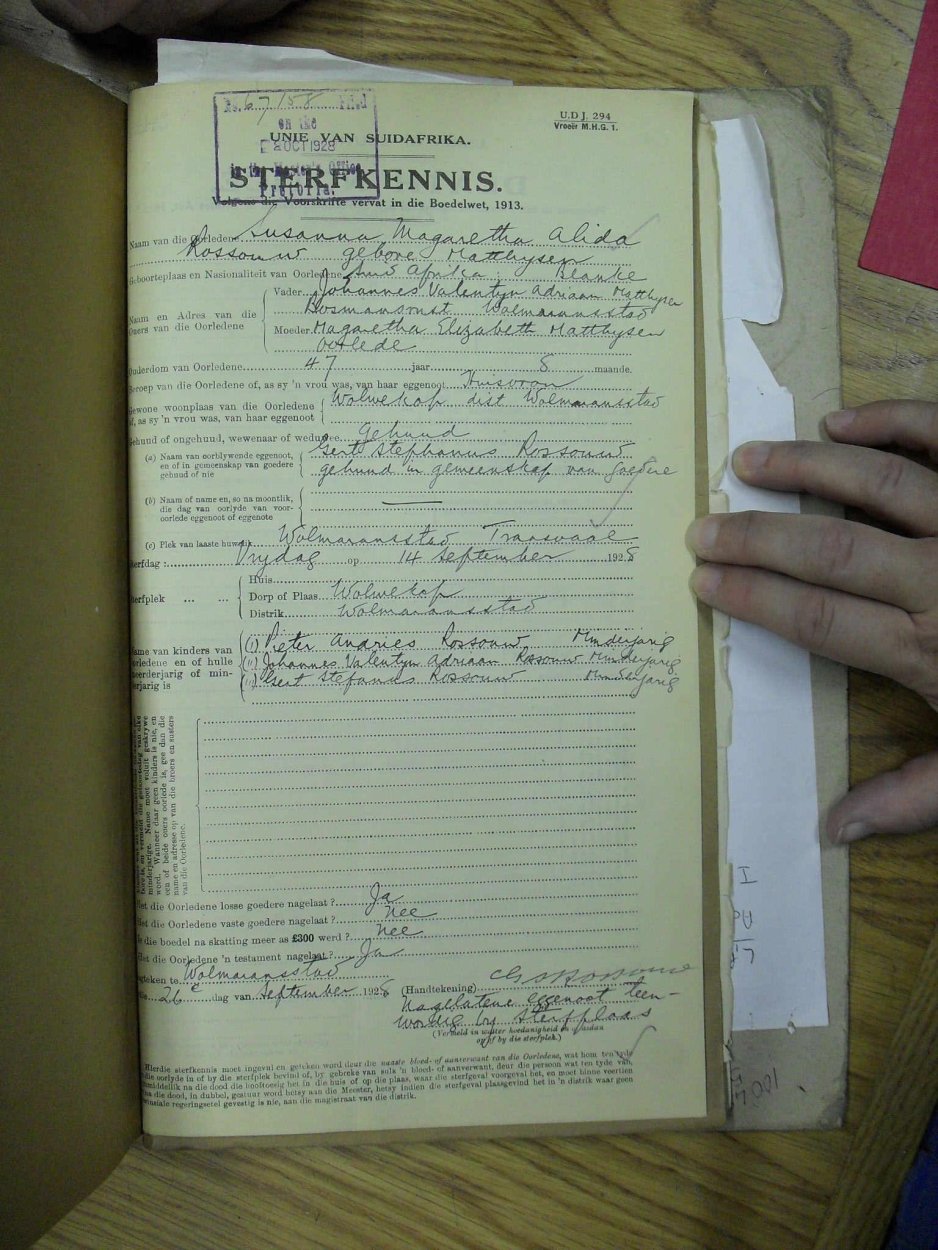 No. 67158 Filed
on the
2 OCT 1928
in the Master's Office
Pretoria.
U.D.J. 294
Vroeër M.H.G. 1.
UNIE VAN SUIDAFRIKA.
STERFKENNIS.
Volgens die Voorskrifte vervat in die Boedelwet, 1913.
Naam van die Oorledene Susanna Magaretha Alida
Rossouw gebore Matthysen
Geboorteplaas en Nasionaliteit van Oorledene Suid Afrika : Blanke
Naam en Adres van die Ouers van die Oorledene
Vader Johannes Valentyn Adriaan Matthysen
Bosmansrust Wolmaransstad
Moeder Magaretha Elizabeth Matthysen
oorlede
Ouderdom van Oorledene 47 jaar 8 maande.
Beroep van die Oorledene of, as sy 'n vrou was, van haar eggenoot Huisvrou
Gewone woonplaas van die Oorledene of, as sy 'n vrou was, van haar eggenoot Wolwekop dist Wolmaransstad
Gehuud of ongehuud, wewenaar of weduwee gehuud
(a) Naam van oorblywende eggenoot, en of in gemeenskap van goedere gehuud of nie
Gert Stephanus Rossouw
gehuud in gemeenskap van goedere
(b) Naam of name en, so na moontlik, die dag van oorlyde van vooroorlede eggenoot of eggenote
(c) Plek van laaste huwelik Wolmaransstad Transvaal
Sterfdag : Vrydag op 14 September 1928
Sterfplek ... ...
Huis
Dorp of Plaas Wolwekop
Distrik Wolmaransstad
Name van kinders van Oorledene en of hulle meerderjarig of minderjarig is
(i) Pieter Andries Rossouw Minderjarig
(ii) Johannes Valentyn Adriaan Rossouw Minderjarig
Gert Stefanus Rossouw Minderjarig
minderjarige. Name moet voluit geskrywe
word. Wanneer daar geen kinders is nie, en
een of beide ouers oorlede is, gee dan die
name en adresse op van die broers en susters
van die Oorledene.
Het die Oorledene losse goedere nagelaat ? Ja
Het die Oorledene vaste goedere nagelaat ? nee
Is die boedel na skatting meer as £300 werd ? nee
Het die Oorledene 'n testament nagelaat ? Ja
Wolmaransstad
26e dag van September 1928
(Handtekening) G S Rossouw
Nagelatene eggenoot teen-
wordig by Sterfplaas
(Vermeld in watter hoedanigheid en of by die sterfplek.)
Hierdie sterfkennis moet ingevul en geteken word deur die naaste bloed- of aanverwant van die Oorledene, wat hom ten tyde
die oorlyde in of by die sterfplek bevind of, by gebreke van sulk 'n bloed- of aanverwant, deur die persoon wat ten tyde van,
onmiddellik na die dood die hooftoesig het in die huis of op die plaas, waar die sterfgeval voorgeval het, en moet binne veertien
na die dood, in dubbel, gestuur word hetsy aan die Meester, hetsy indien die sterfgeval plaasgevind het in 'n distrik waar geen
Provinsiale regeringsetel gevestig is nie, aan die magistraat van die distrik.